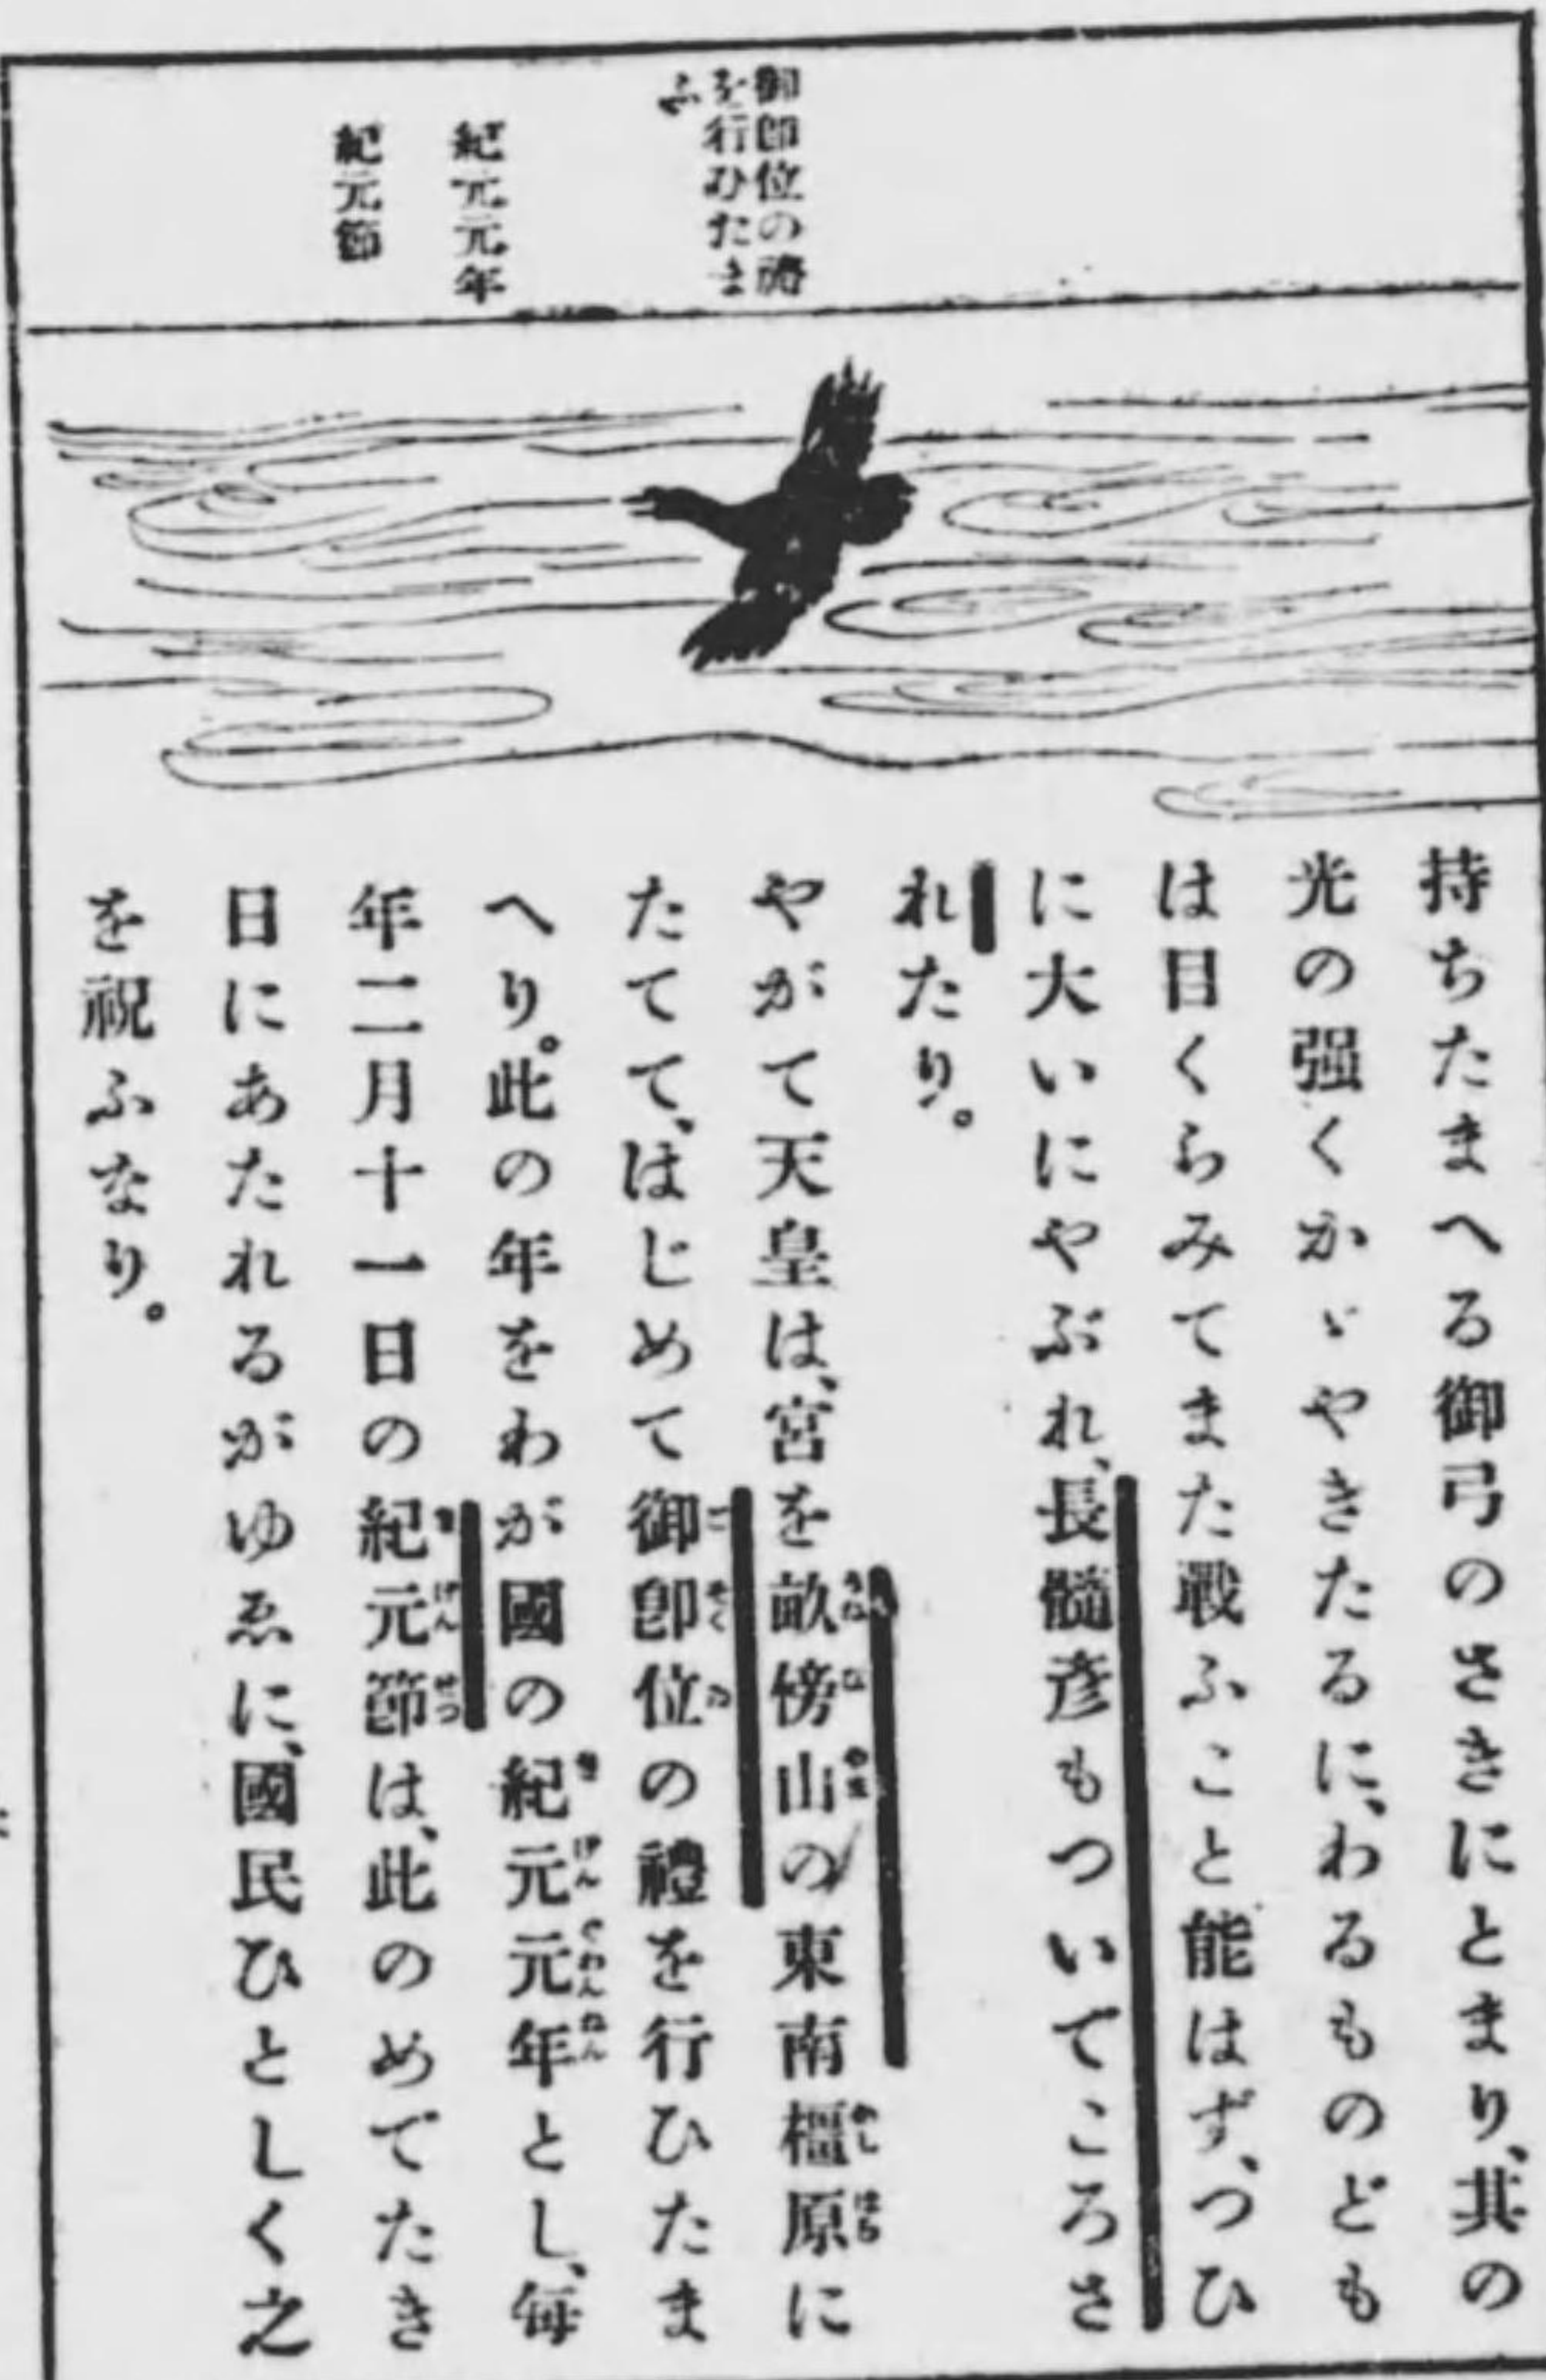 御即位の禮
を行ひたま
ふ
紀元元年
紀元節
持ちたまへる御弓のさきにとまり、其の
光の强くかゞやきたるに、わるものども
は目くらみてまた戰ふこと能はず、つひ
に大いにやぶれ、長髓彦もつひてころさ
れたり。
やがて天皇は、宮を畝傍山の東南橿原に
たてて、はじめて御卽位の禮を行ひたま
へり。此の年をわが國の紀元元年とし、每
年二月十一日の紀元節は、此のめでたき
日にあたれるがゆゑに、國民ひとしく之
を祝ふなり。